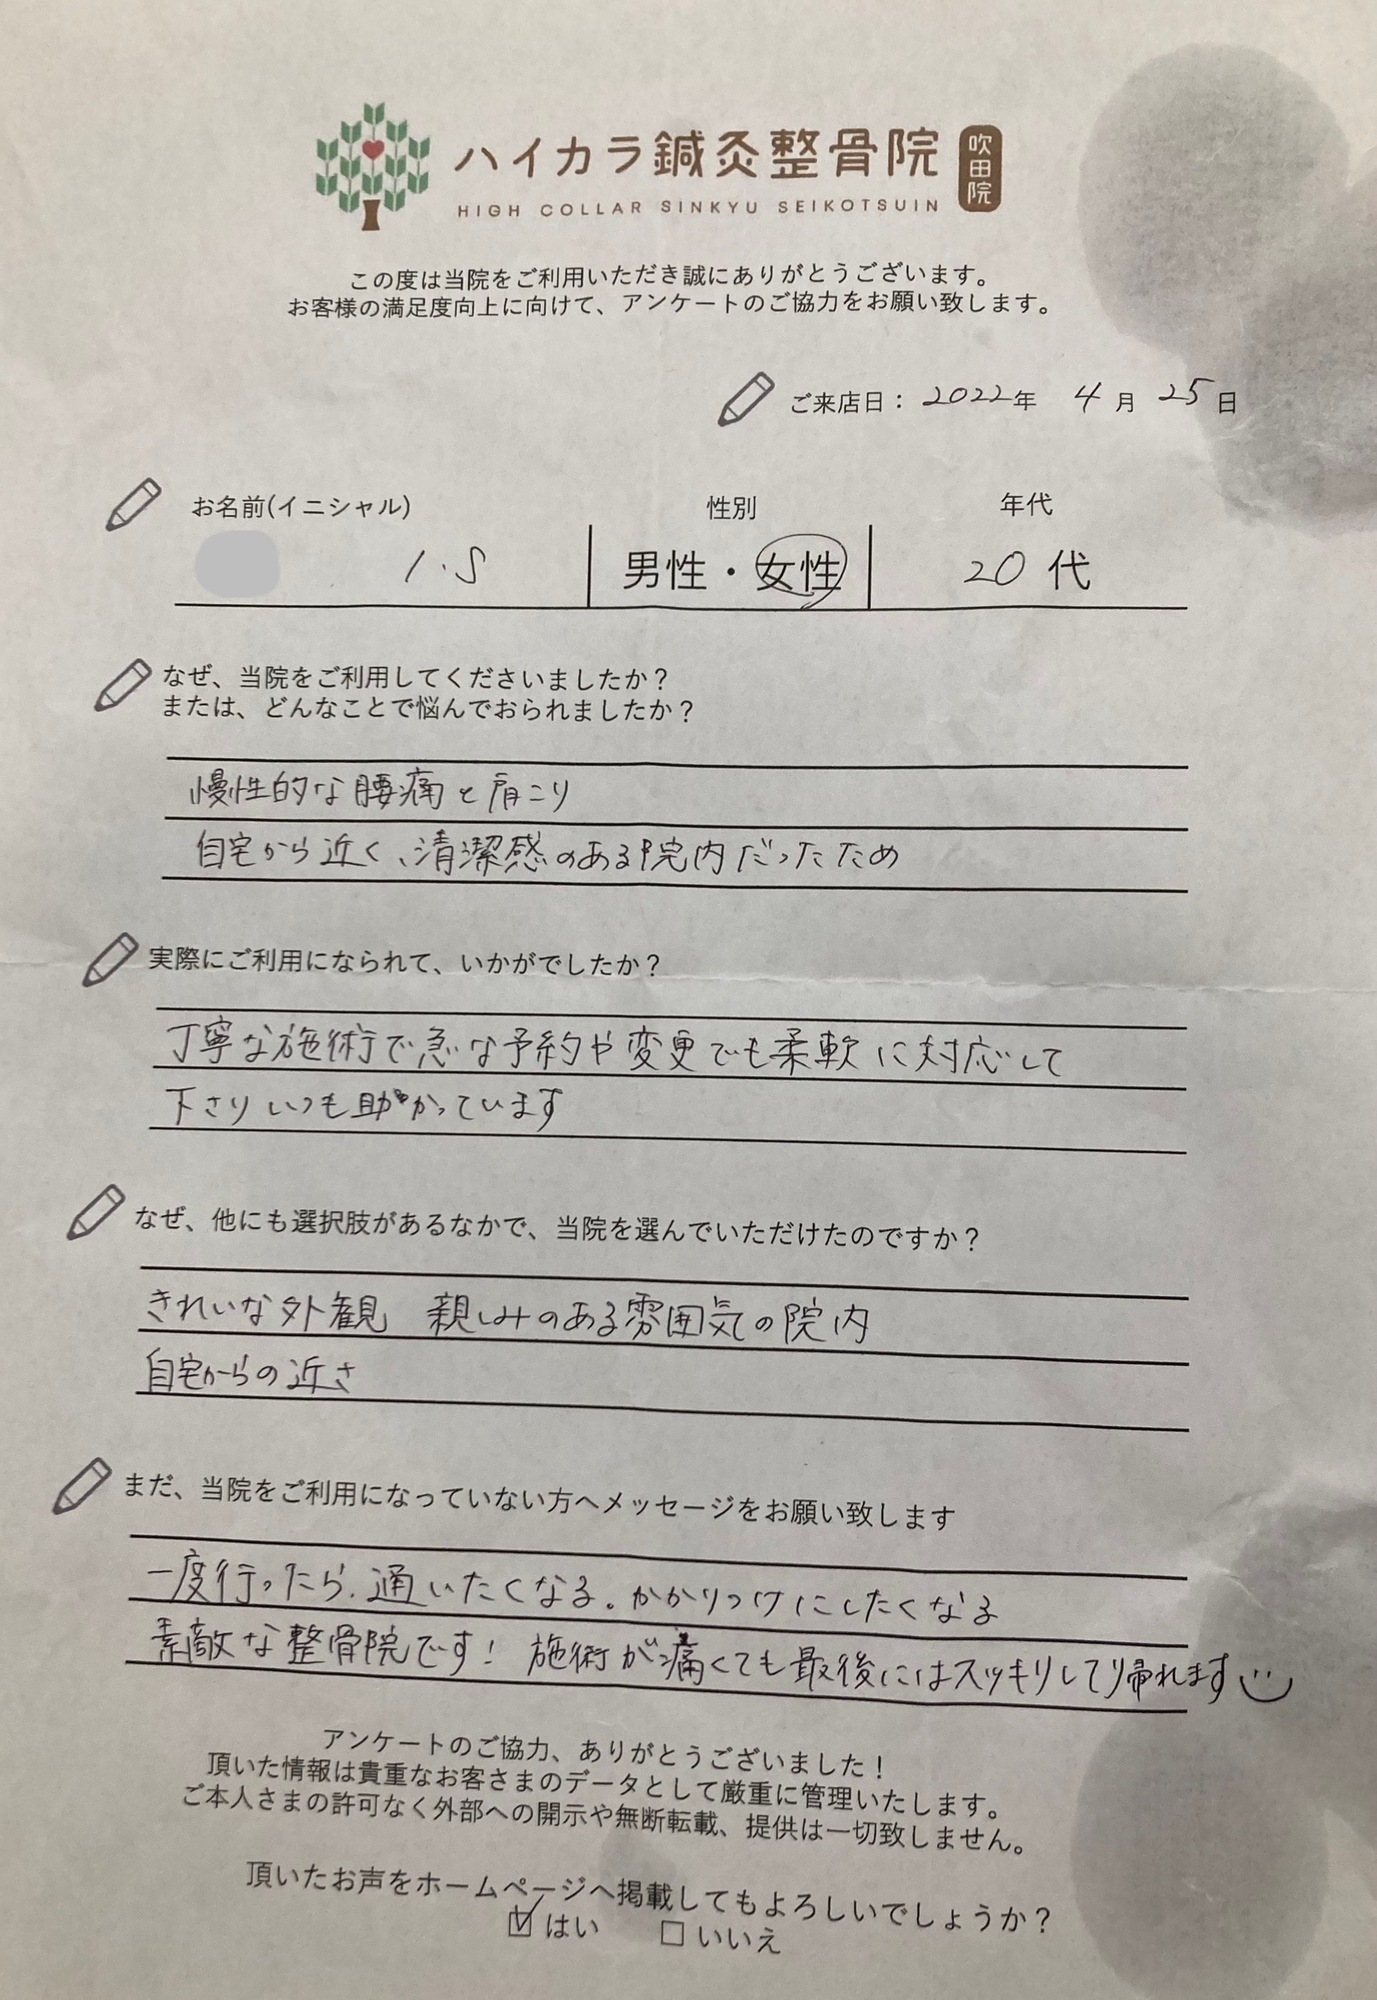 ハイカラ鍼灸整骨院 吹田院
HIGH COLLAR SINKYU SEIKOTSUIN
この度は当院をご利用いただき誠にありがとうございます。
お客様の満足度向上に向けて、アンケートのご協力をお願い致します。
ご来店日： 2022年 4月 25日
お名前(イニシャル) 性別 年代
I.S 男性・女性 20代
なぜ、当院をご利用してくださいましたか？
または、どんなことで悩んでおられましたか？
慢性的な腰痛と肩こり
自宅から近く、清潔感のある院内だったため
実際にご利用になられて、いかがでしたか？
丁寧な施術で急な予約や変更でも柔軟に対応して
下さりいつも助かっています
なぜ、他にも選択肢があるなかで、当院を選んでいただけたのですか？
きれいな外観 親しみのある雰囲気の院内
自宅からの近さ
まだ、当院をご利用になっていない方へメッセージをお願い致します
一度行ったら、通いたくなる。かかりつけにしたくなる
素敵な整骨院です！ 施術が痛くても最後にはスッキリして帰れます
アンケートのご協力、ありがとうございました！
頂いた情報は貴重なお客さまのデータとして厳重に管理いたします。
ご本人さまの許可なく外部への開示や無断転載、提供は一切致しません。
頂いたお声をホームページへ掲載してもよろしいでしょうか？
☑はい □いいえ